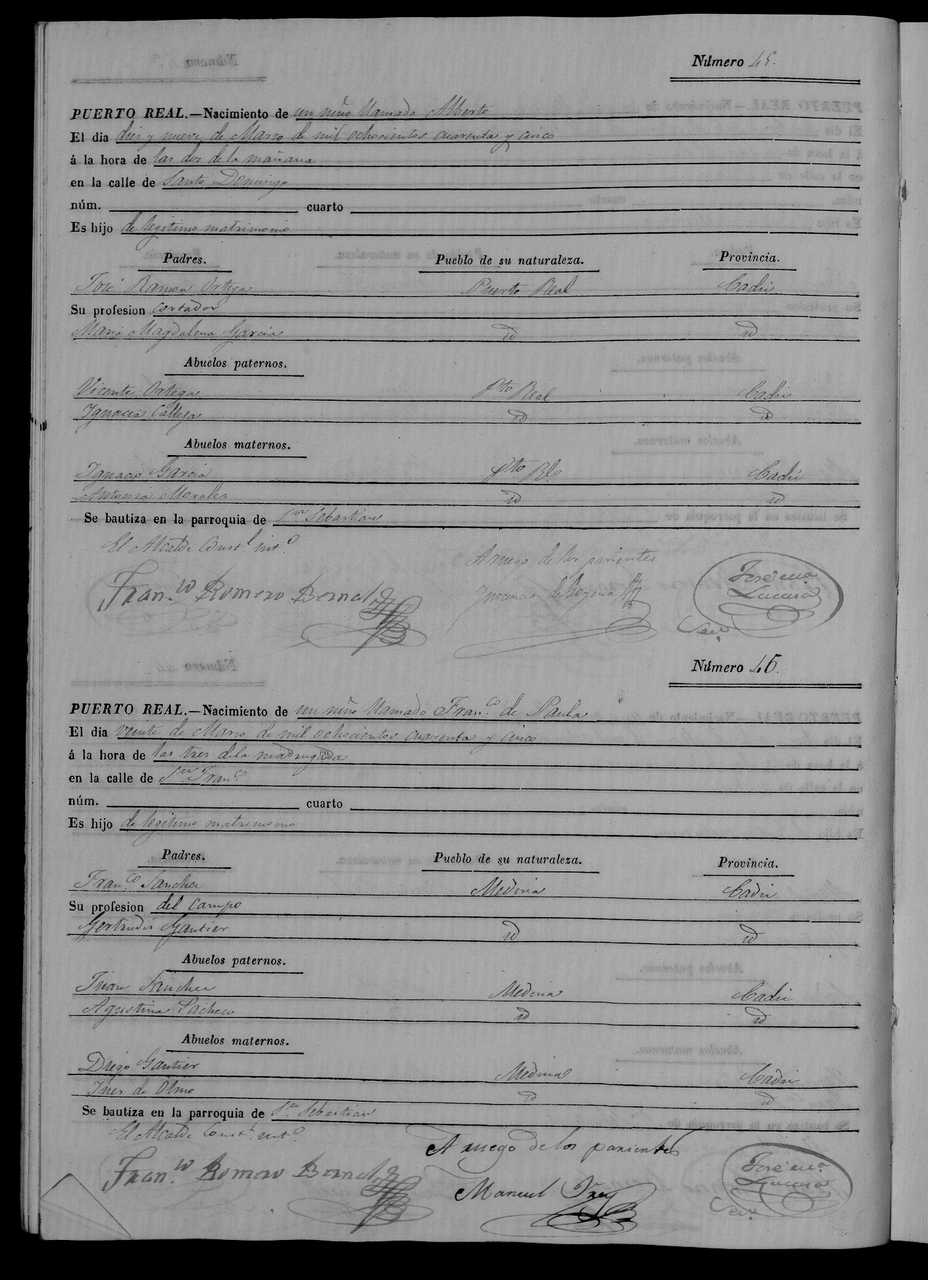 Número 45.
PUERTO REAL.—Nacimiento de un niño llamado Alberto
El dia diez y nueve de Marzo de mil ochocientos cuarenta y cinco
á la hora de las dos de la mañana
en la calle de Santo Domingo
núm. cuarto
Es hijo de legitimo matrimonio
Padres. Pueblo de su naturaleza. Provincia.
José Ramon Ortega Puerto Real Cadiz
Su profesion cortador
Maria Magdalena Garcia id id
Abuelos paternos.
Vicente Ortega Pto Real Cadiz
Ignacia Calleja id id
Abuelos maternos.
Ignacio Garcia Pto Rl Cadiz
Antonia Morales id id
Se bautiza en la parroquia de Sn Sebastian
El Alcalde Const.l int.o
A ruego de los parientes
Fran.co Romero Bernal
José
Lucuix
Secr.
Número 46.
PUERTO REAL.—Nacimiento de un niño llamado Fran.co de Paula
El dia veinte de Marzo de mil ochocientos cuarenta y cinco
á la hora de las tres de la madrugada
en la calle de Sn Fran.co
núm. cuarto
Es hijo de legitimo matrimonio
Padres. Pueblo de su naturaleza. Provincia.
Fran.co Sanchez Medina Cadiz
Su profesion del campo
Gertrudis Gautier id id
Abuelos paternos.
Juan Sanchez Medina Cadiz
Agustina Pacheco id id
Abuelos maternos.
Diego Gautier Medina Cadiz
Ines de Olmo id id
Se bautiza en la parroquia de Sn Sebastian
El Alcalde Const.l int.o
A ruego de los parientes
Fran.co Romero Bernal
Manuel
José
Secr.